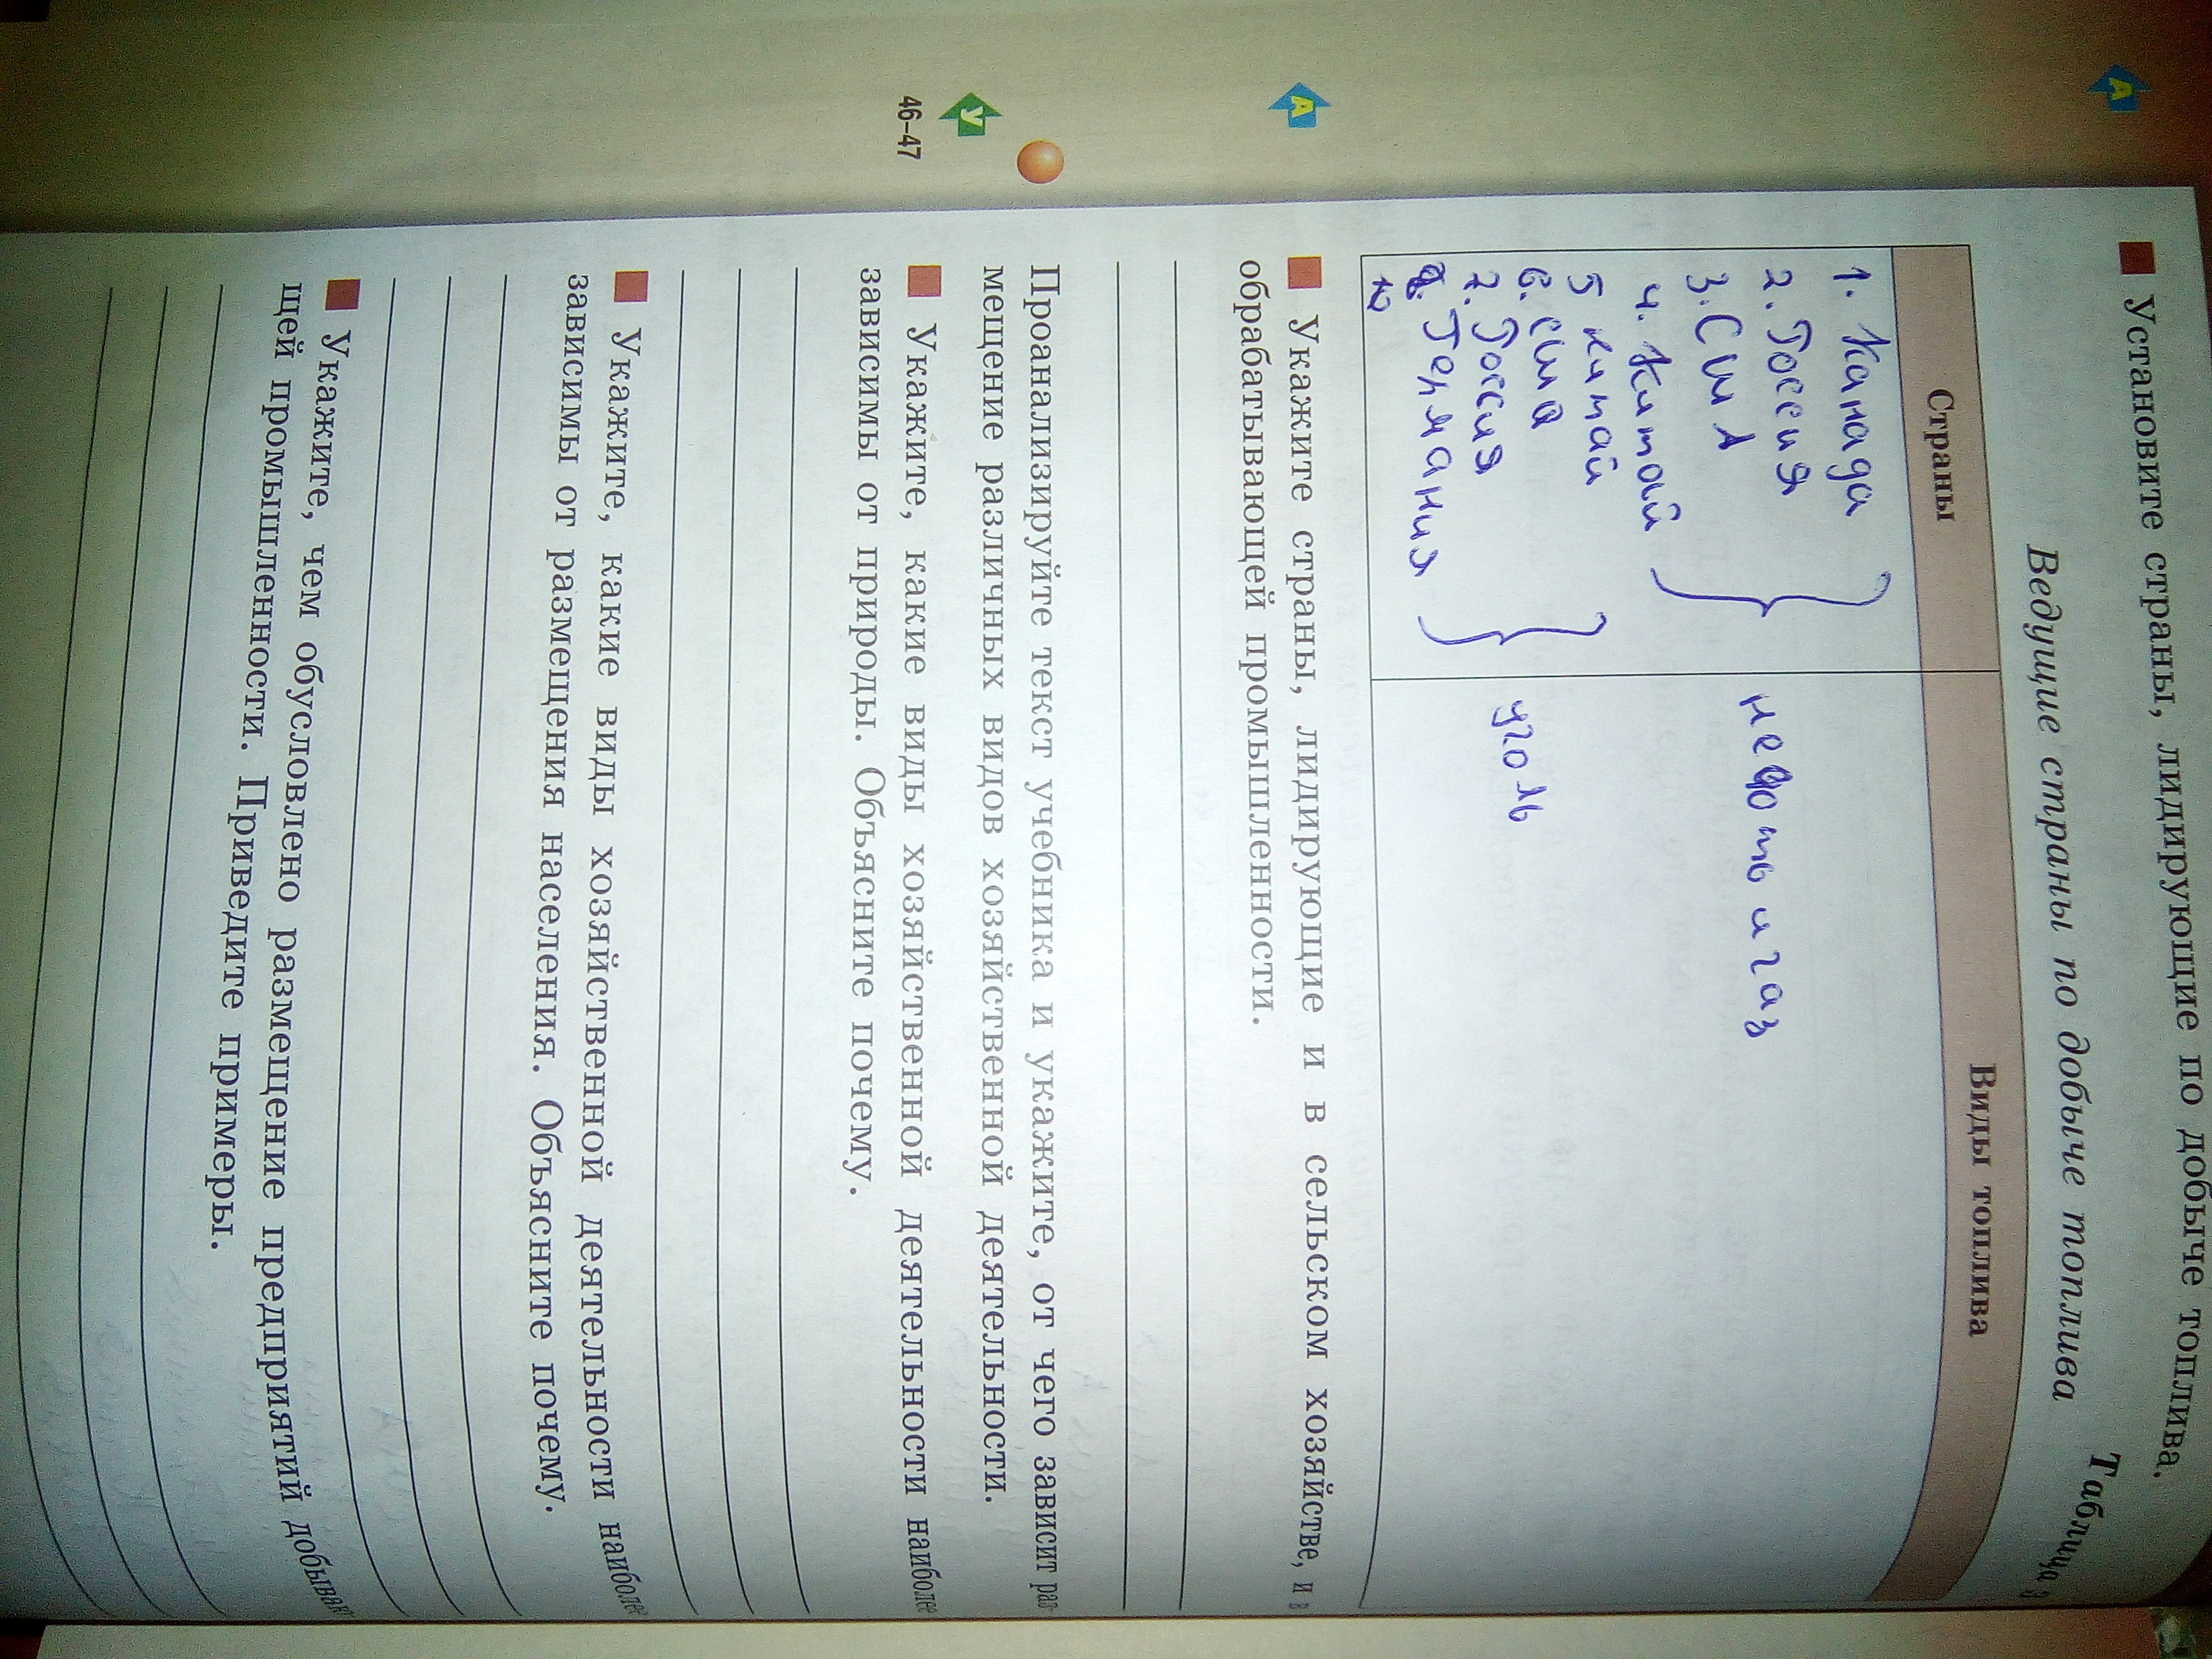 А
■ Установите страны, лидирующие по добыче топлива.
Таблица 3
Ведущие страны по добыче топлива
Страны Виды топлива
1. Канада
2. Россия
3. США
4. Китай
нефть и газ
5 китай
6. сша
7. Россия
8. Германия
уголь
А
■ Укажите страны, лидирующие и в сельском хозяйстве, и в
обрабатывающей промышленности.
У
46–47
Проанализируйте текст учебника и укажите, от чего зависит раз-
мещение различных видов хозяйственной деятельности.
■ Укажите, какие виды хозяйственной деятельности наиболее
зависимы от природы. Объясните почему.
■ Укажите, какие виды хозяйственной деятельности наиболее
зависимы от размещения населения. Объясните почему.
■ Укажите, чем обусловлено размещение предприятий добываю-
щей промышленности. Приведите примеры.